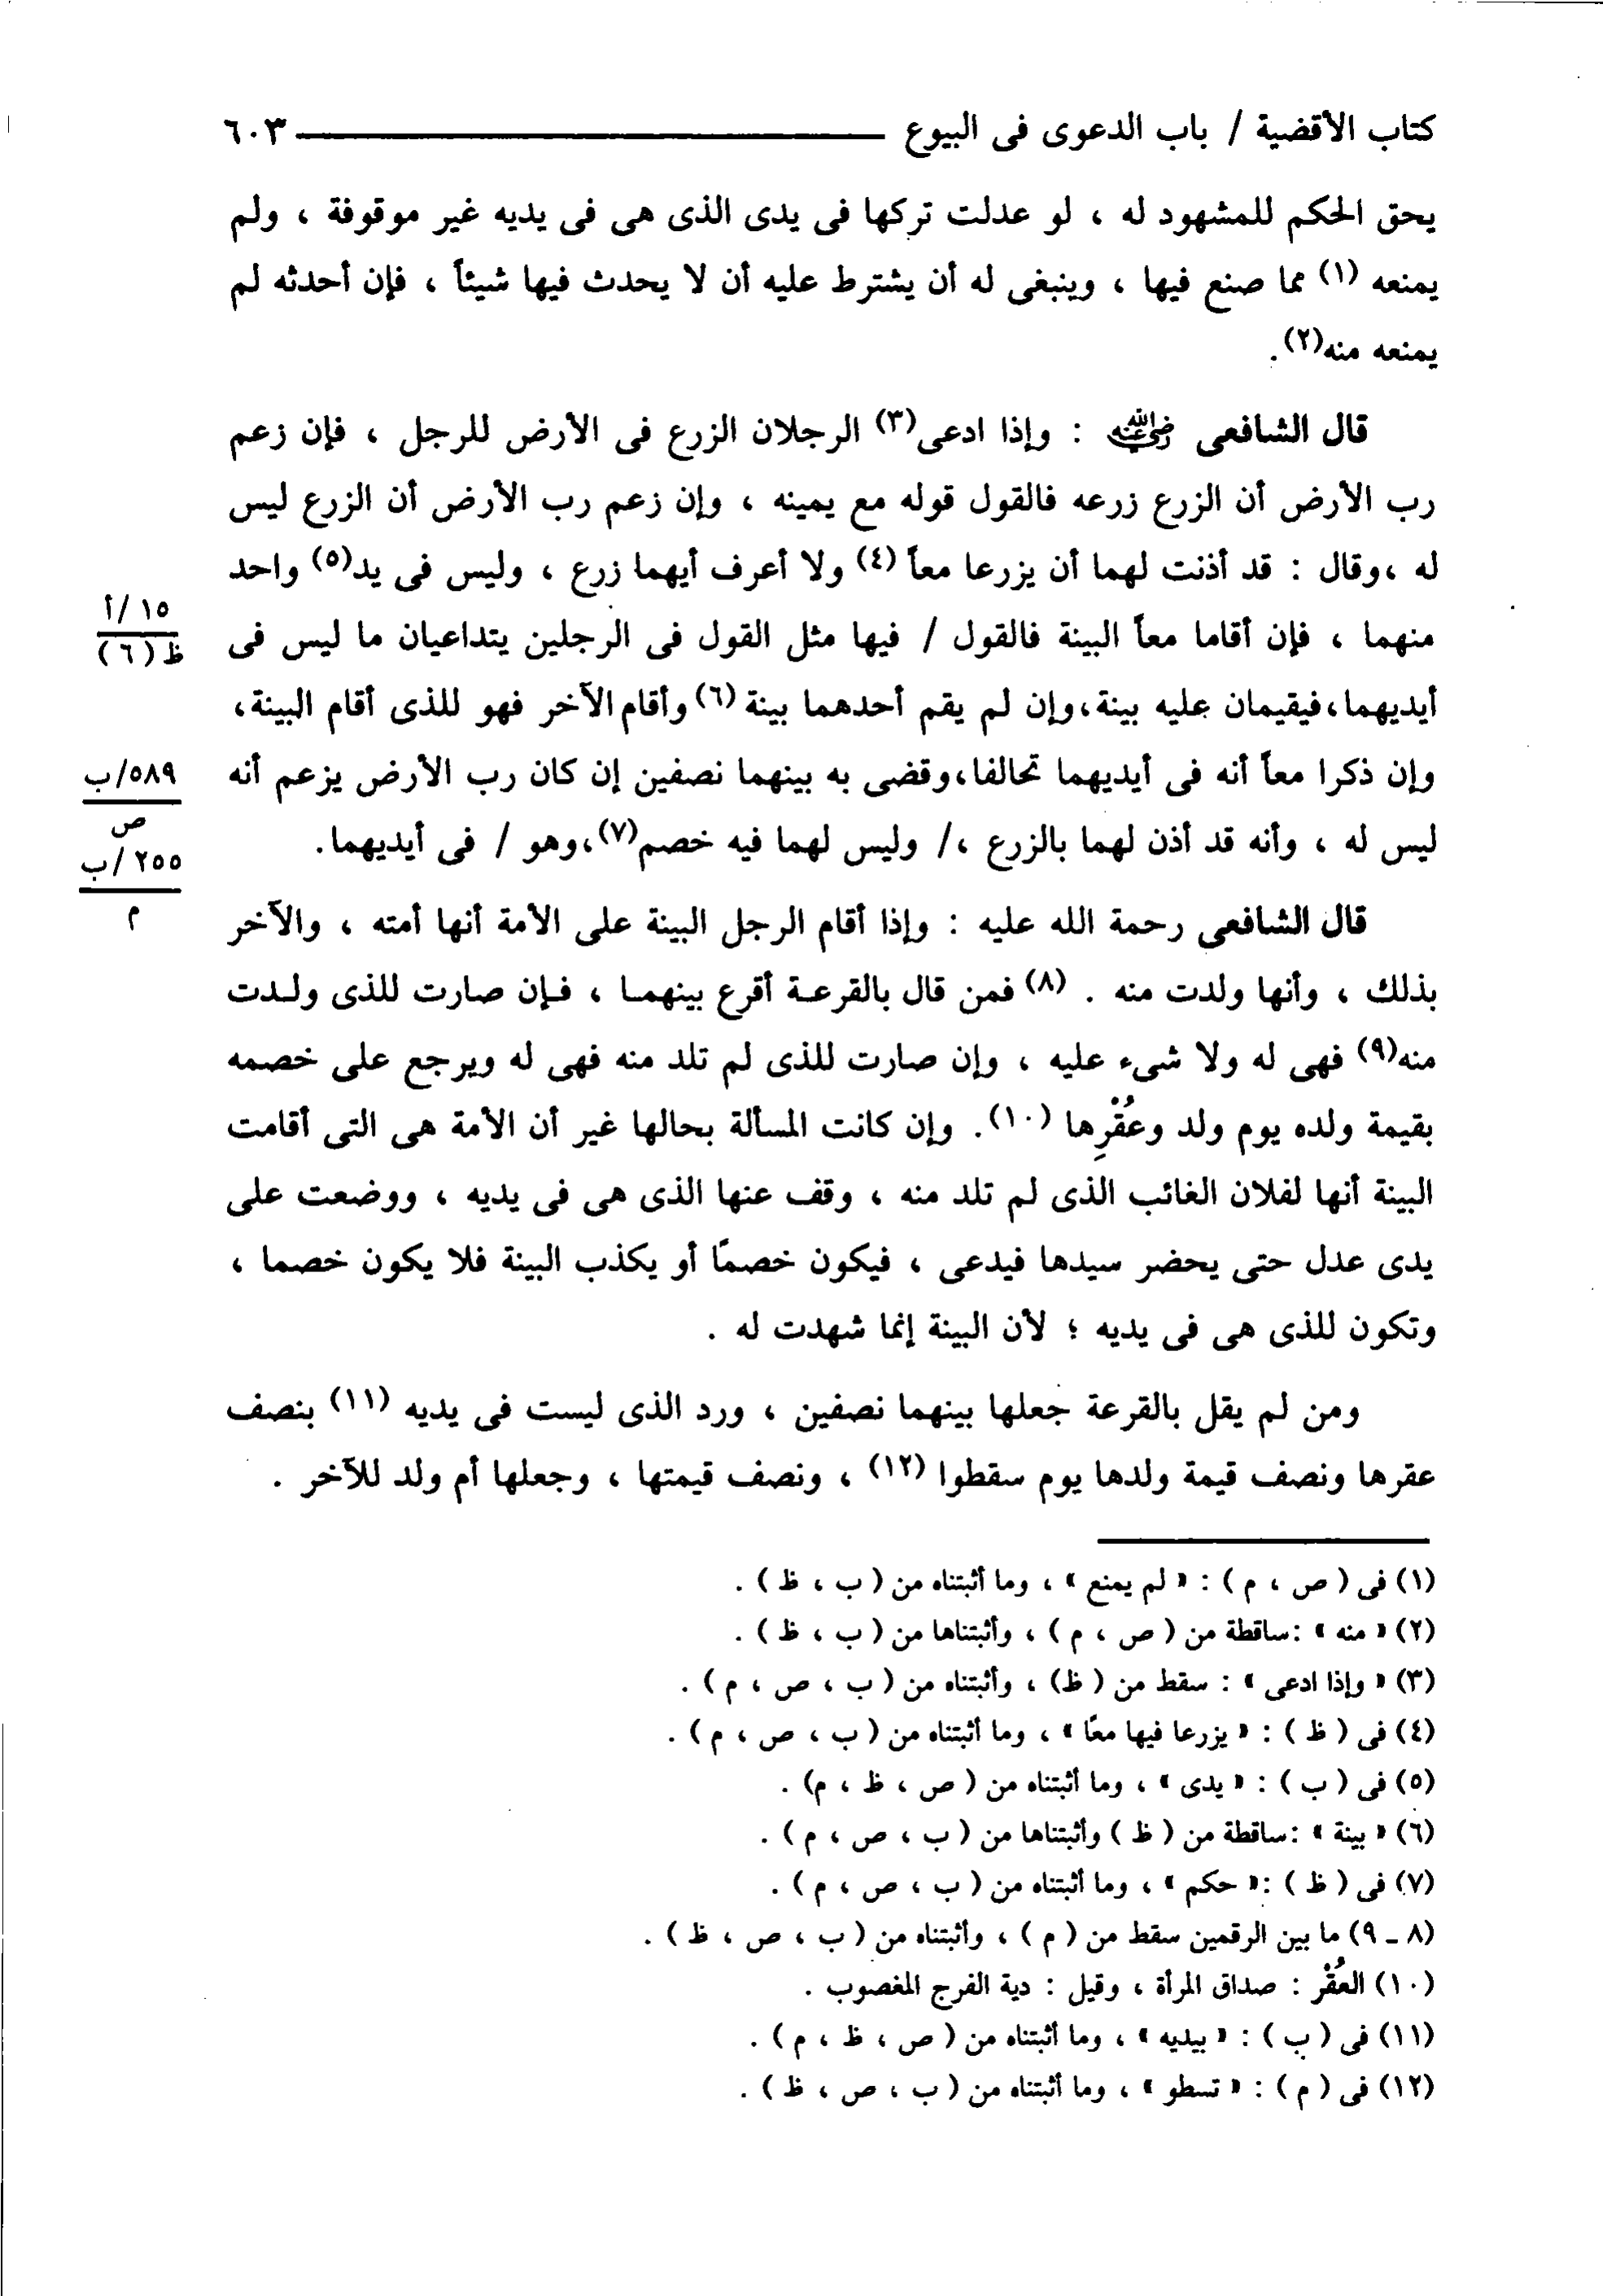 كتاب الأقضية / باب الدعوى فى البيوع ٦٠٣
يحق الحكم للمشهود له ، لو عدلت تركها فى يدى الذى هى فى يديه غير موقوفة ، ولم
يمنعه (١) مما صنع فيها ، وينبغى له أن يشترط عليه أن لا يحدث فيها شيئاً ، فإن أحدثه لم
يمنعه منه(٢).
قال الشافعى رضي الله عنه : وإذا ادعى(٣) الرجلان الزرع فى الأرض للرجل ، فإن زعم
رب الأرض أن الزرع زرعه فالقول قوله مع يمينه ، وإن زعم رب الأرض أن الزرع ليس
له ،وقال : قد أذنت لهما أن يزرعا معاً (٤) ولا أعرف أيهما زرع ، وليس فى يد(٥) واحد
منهما ، فإن أقاما معاً البينة فالقول / فيها مثل القول فى الرجلين يتداعيان ما ليس فى
١٥ /أ
ظ (٦)
أيديهما،فيقيمان عليه بينة،وإن لم يقم أحدهما بينة (٦) وأقام الآخر فهو للذى أقام البينة،
وإن ذكرا معاً أنه فى أيديهما تحالفا،وقضى به بينهما نصفين إن كان رب الأرض يزعم أنه
٥٨٩/ب
ص
ليس له ، وأنه قد أذن لهما بالزرع ،/ وليس لهما فيه خصم(٧)،وهو / فى أيديهما.
٢٥٥ /ب
م
قال الشافعى رحمة الله عليه : وإذا أقام الرجل البينة على الأمة أنها أمته ، والآخر
بذلك ، وأنها ولدت منه . (٨) فمن قال بالقرعة أقرع بينهما ، فإن صارت للذى ولدت
منه(٩) فهى له ولا شىء عليه ، وإن صارت للذى لم تلد منه فهى له ويرجع على خصمه
بقيمة ولده يوم ولد وعُقْرِها (١٠). وإن كانت المسألة بحالها غير أن الأمة هى التى أقامت
البينة أنها لفلان الغائب الذى لم تلد منه ، وقف عنها الذى هى فى يديه ، ووضعت على
يدى عدل حتى يحضر سيدها فيدعى ، فيكون خصمًا أو يكذب البينة فلا يكون خصما ،
وتكون للذى هى فى يديه ؛ لأن البينة إنما شهدت له .
ومن لم يقل بالقرعة جعلها بينهما نصفين ، ورد الذى ليست فى يديه (١١) بنصف
عقرها ونصف قيمة ولدها يوم سقطوا (١٢) ، ونصف قيمتها ، وجعلها أم ولد للآخر .
(١) فى ( ص ، م ) : « لم يمنع » ، وما أثبتناه من ( ب ، ظ ) .
(٢) « منه » :ساقطة من ( ص ، م ) ، وأثبتناها من ( ب ، ظ ) .
(٣) « وإذا ادعى » : سقط من ( ظ) ، وأثبتناه من ( ب ، ص ، م ) .
(٤) فى ( ظ ) : « يزرعا فيها معًا » ، وما أثبتناه من ( ب ، ص ، م ) .
(٥) فى ( ب ) : « يدى » ، وما أثبتناه من ( ص ، ظ ، م) .
(٦) « بينة » :ساقطة من ( ظ ) وأثبتناها من ( ب ، ص ، م ) .
(٧) فى ( ظ ) :« حكم » ، وما أثبتناه من ( ب ، ص ، م ) .
(٨ ـ ٩) ما بين الرقمين سقط من ( م ) ، وأثبتناه من ( ب ، ص ، ظ ) .
(١٠) العُقْر : صداق المرأة ، وقيل : دية الفرج المغصوب .
(١١) فى ( ب ) : « بيديه » ، وما أثبتناه من ( ص ، ظ ، م ) .
(١٢) فى ( م ) : « تسطو » ، وما أثبتناه من ( ب ، ص ، ظ ) .